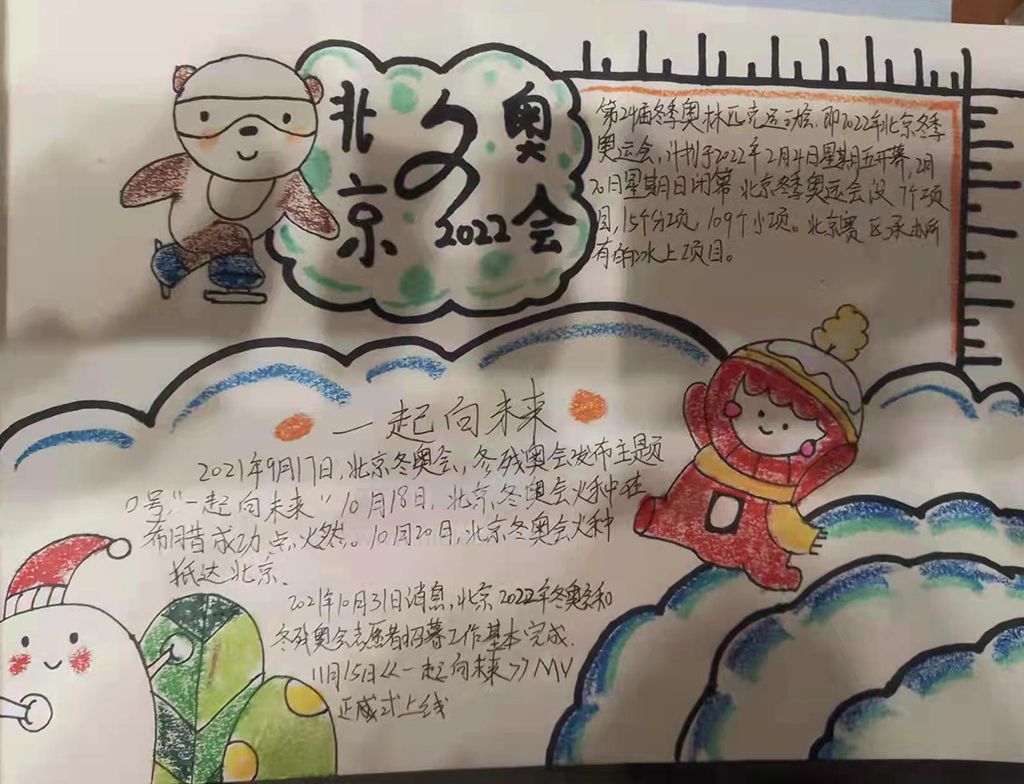 北京
冬奥会
2022
第24届冬季奥林匹克运动会,即2022年北京冬季
奥运会,计划于2022年2月4日星期五开幕,2月
20日星期日闭幕 北京冬季奥运会设7个项
目,15个分项,109个小项。北京赛区承办所
有的冰上项目。
一起向未来
2021年9月17日,北京冬奥会,冬残奥会发布主题
口号"一起向未来"10月18日,北京冬奥会火种在
希腊成功点火然。10月20日,北京冬奥会火种
抵达北京.
2021年10月31日消息,北京2022年冬奥和
冬残奥会志愿者招募工作基本完成.
11月15日《一起向未来》MV
正式上线